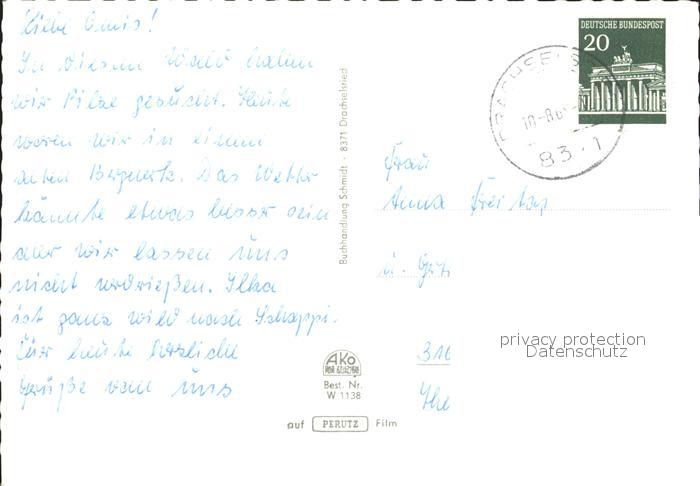 Liebe Omis!
In diesem Wald haben
wir Pilze gesucht. Heute
waren wir in einem
alten Bergwerk. Das Wetter
könnte etwas besser sein
aber wir lassen uns
nicht verdrießen. Ilka
ist ganz wild nach Schappi.
Für heute herzliche
Grüße von uns
Buchhandlung Schmidt · 8371 Drachselsried
AKO
Best. Nr.
W 1138
auf PERUTZ Film
DEUTSCHE BUNDESPOST
20
DRACHSELS
83·1
Frau
Anna Freitag
u.
privacy protection
Datenschutz